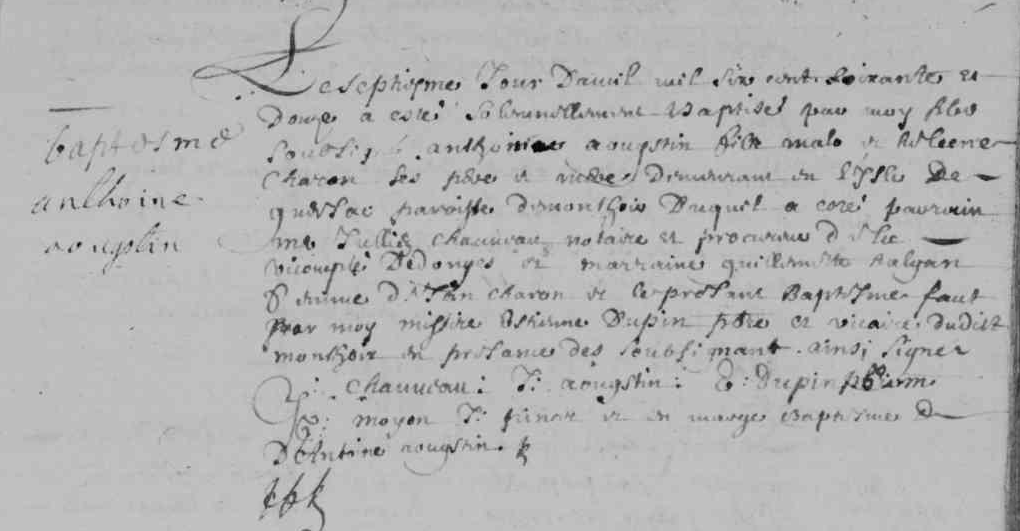 baptesme
anthoine
aougstin
Le septiesme Jour Davril mil six cent soixante et
Douze a esté solemnellement Baptisé par moy
soubsigné anthoine aougstin filz malo et helene
Charon ses pere et mere Demeurant en l'Isle De
paroisse de monthoir Duquel a esté parrain
me Jullie Chauveau notaire et procureur de
vicompté Dedonges et marraine guillemette
femme de Jan Charon et le present Baptesme faict
par moy missire Estienne Dupin pbre et vicaire dudict
monthoir en presance des soubsignant ainsi signer
Chauveau : J: aougstin : E: Dupin pbre
moyon J: et en marge Baptesme d
D'Antoine aougstin.